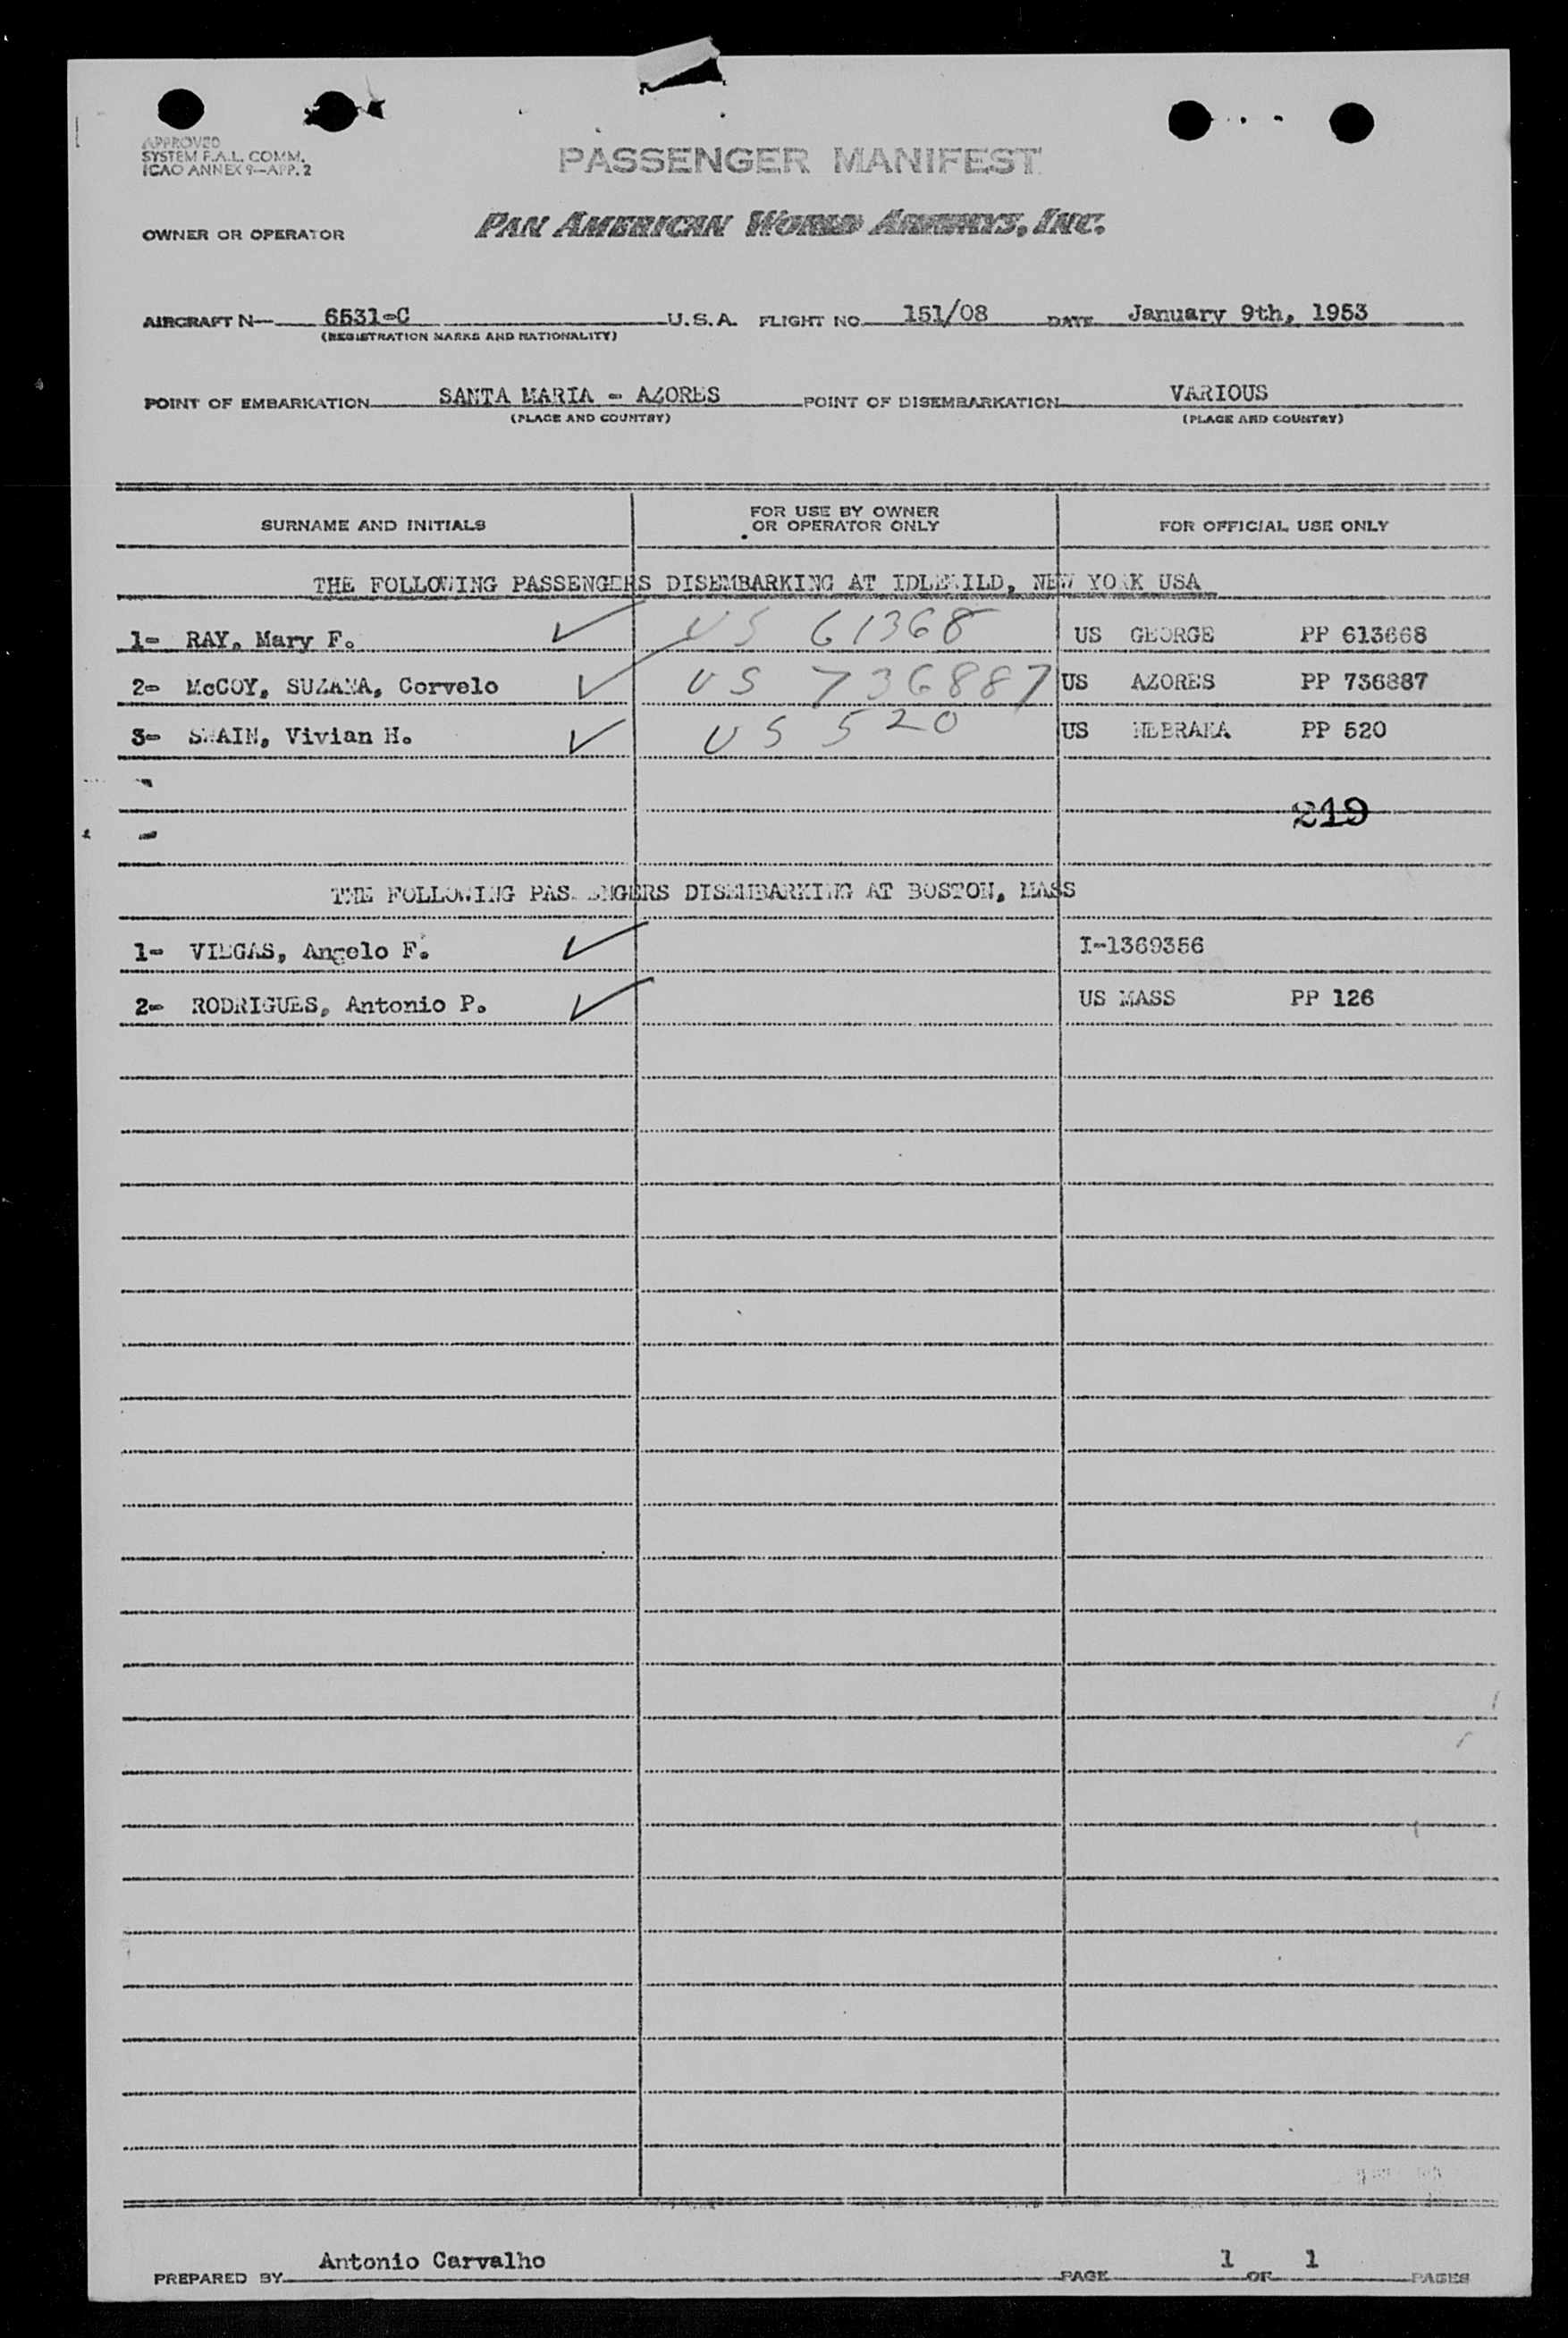 APPROVED
SYSTEM F.A.L. COMM.
ICAO ANNEX 9—APP. 2
PASSENGER MANIFEST
OWNER OR OPERATOR PAN AMERICAN WORLD AIRWAYS, INC.
AIRCRAFT N— 6531-C U.S.A. FLIGHT NO. 151/08 DATE January 9th, 1953
(REGISTRATION MARKS AND NATIONALITY)
POINT OF EMBARKATION SANTA MARIA - AZORES POINT OF DISEMBARKATION VARIOUS
(PLACE AND COUNTRY) (PLACE AND COUNTRY)
SURNAME AND INITIALS FOR USE BY OWNER OR OPERATOR ONLY FOR OFFICIAL USE ONLY
THE FOLLOWING PASSENGERS DISEMBARKING AT IDLEWILD, NEW YORK USA
1- RAY, Mary F. ✓ US 61368 US GEORGE PP 613668
2- McCOY, SUZANA, Corvelo ✓ US 736887 US AZORES PP 736887
3- SWAIN, Vivian H. ✓ US 520 US NEBRAKA PP 520
219
THE FOLLOWING PASSENGERS DISEMBARKING AT BOSTON, MASS
1- VIEGAS, Angelo F. ✓ I-1369356
2- RODRIGUES, Antonio P. ✓ US MASS PP 126
PREPARED BY Antonio Carvalho PAGE 1 OF 1 PAGES